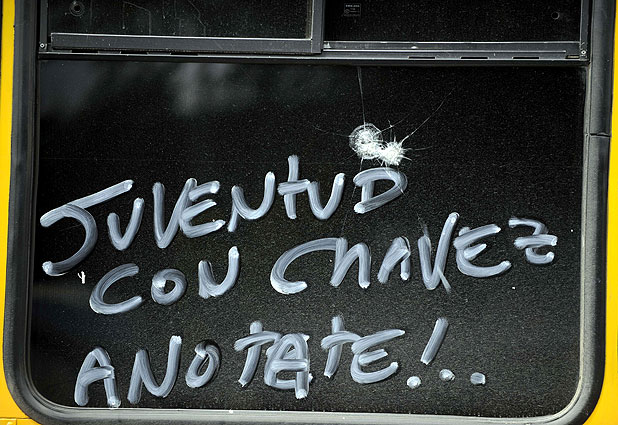 JUVENTUD
CON CHAVEZ
ANOTATE!...